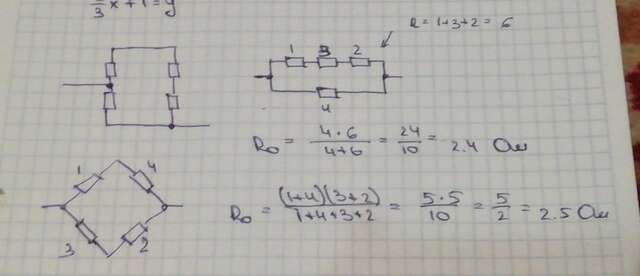 1/3 x + 1 = y
R = 1+3+2 = 6
1 3 2
4
R₀ = 4·6 / 4+6 = 24/10 = 2.4 Ом
1 4
3 2
R₀ = (1+4)(3+2) / 1+4+3+2 = 5·5 / 10 = 5/2 = 2.5 Ом